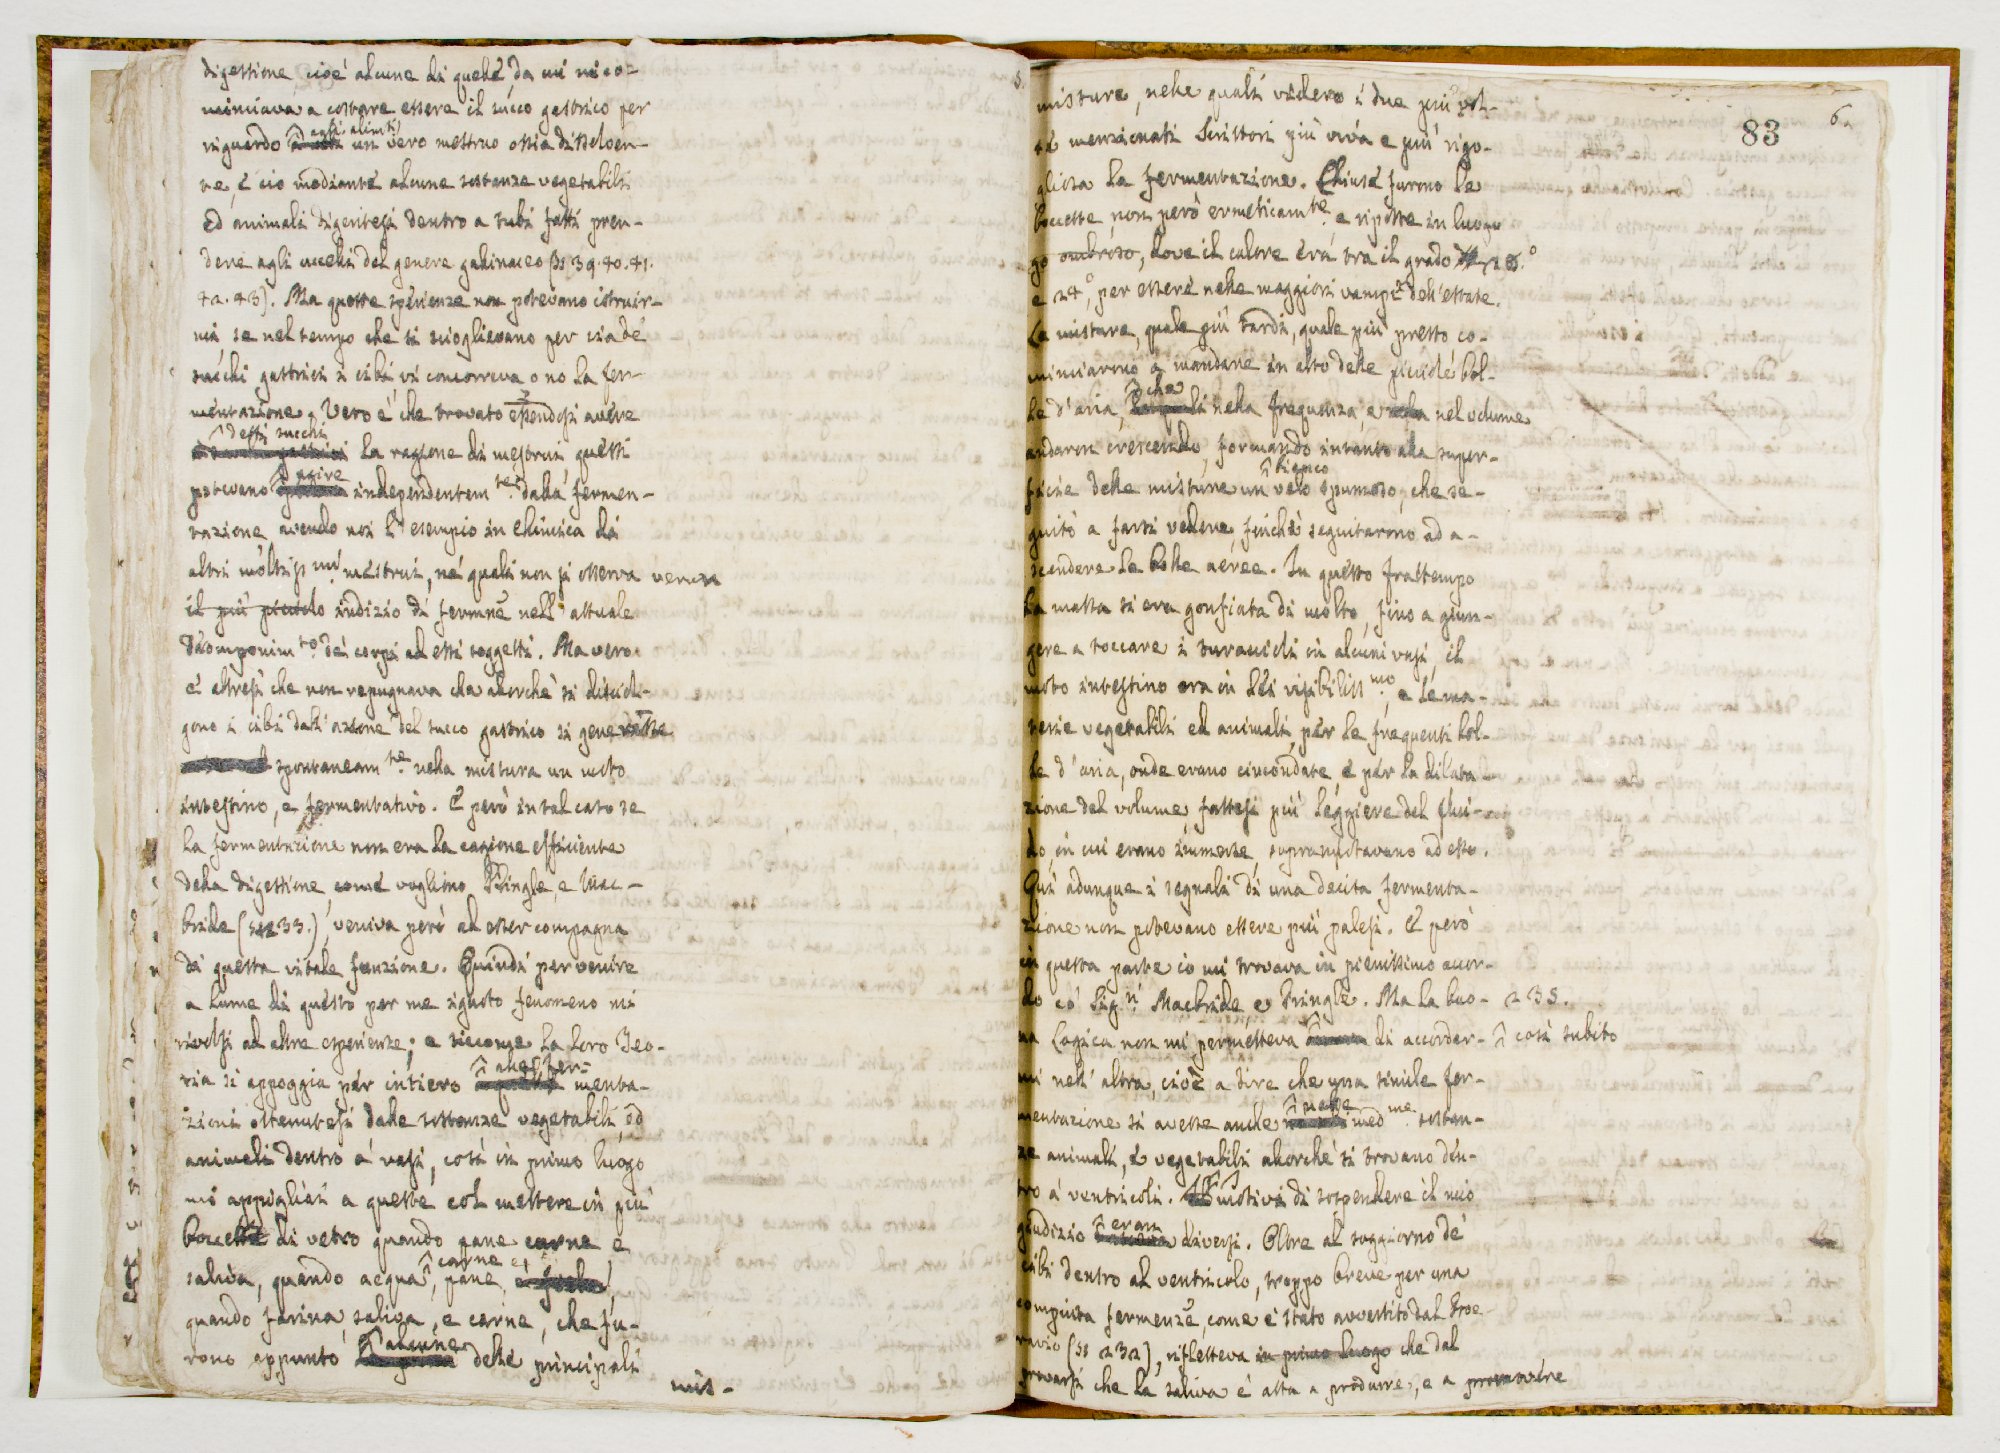 digestione, cioè alcune di quelle da cui mi co-
minciava a costare essere il succo gastrico per
riguardo agli alimti un vero mestruo ossia dissolven-
te, e ciò mediante alcune sostanze vegetabili
ed animali digeritesi dentro a tubi fatti pren-
dere agli uccelli del genere gallinaceo (§§ 39. 40. 41.
42. 43). Ma queste sperienze non potevano istruir-
mi, se nel tempo che si scioglievano per via de'
succhi gastrici i cibi, vi concorreva o no la fer-
mentazione. Vero è che trovato essendosi avere
detti succhi la ragione di mestrui questi
potevano agire independentemte. dalla fermen-
tazione avendo noi l'esempio in Chimica di
altri moltissmi. mestrui, ne' quali non si osserva verun
il più piccolo indizio di fermne nell'attuale
dicomponimto. de' corpi ad essi soggetti. Ma vero
è altresì che non repugnava che allorchè si discioli-
gono i cibi dall'azione del succo gastrico si generasse
spontaneamte. nella mistura un moto
intestino, e fermentativo. E però in tal caso se
la fermentazione non era la cagione efficiente
della digestione, come vogliono Pringle, e Mac-
bride (§ 233.), veniva però ad esser compagna
di questa vitale funzione. Quindi per venire
a lume di questo per me rigusto fenomeno mi
rivolsi ad altre esperienze; e siccome la loro Teo-
ria si appoggia per intiero alle fer- menta-
zioni ottenutesi dalle sostanze vegetabili, ed
animali dentro a' vasi, così in primo luogo
mi appigliai a queste col mettere in più
boccette di vetro quando pane carne e
saliva, quando acqua, carne e pane,
quando farina, saliva, e carne, che fu-
rono appunto alcune delle principali
mis-
83
6.
misture, nelle quali videro i due più vol-
te menzionati Scrittori più viva e più rigo-
gliosa la fermentazione. Chiuse furono le
boccette, non però ermeticamte. e riposte in luogo
go ombroso, dove il calore era tra il grado 18.°
e 24°, per essere nelle maggiori vampe dell'estate.
Le misture, quale più tardi, quale più presto co-
minciarono a mandare in alto delle piccole bol-
le d'aria, che nella frequenza, e nel volume
andaron crescendo, formando intanto alla super-
ficie delle misture un bianco velo spumoso, che se-
guitò a farsi vedere, finchè seguitarono ad a-
scendere le bolle aeree. In questo frattempo
la massa si era gonfiata di molto, fino a giun-
gere a toccare i turaccioli in alcuni vasi, il
moto intestino era in lei visibilissmo, e le ma-
terie vegetabili ed animali, per le frequenti bol-
le d'aria, onde erano circondate e per la dilata-
zione del volume, fattesi più leggiere del flui-
do, in cui erano immerse, sopranuotavano ad esso.
Qui adunque i segnali di una decisa fermenta-
zione non potevano essere più palesi. E però
in questa parte io mi trovava in pienissimo accor-
do co' Sig.ri Macbride, e Pringle. Ma la buo- 235.
na Logica non mi permetteva di accordar- così subito
mi nell'altra, cioè a dire che una simile fer-
mentazione si avesse anche nelle medme. sostan-
ze animali, e vegetabili allorchè si trovano den-
tro a' ventricoli. I motivi di sospendere il mio
giudizio eran diversi. Oltre al soggiorno de'
cibi dentro al ventricolo, troppo breve per una
compiuta fermenze, come è stato avvertito dal Boe-
ravio (§§ 232), rifletteva in primo luogo che dal
provarsi che la saliva è atta a produrre, e a promovere